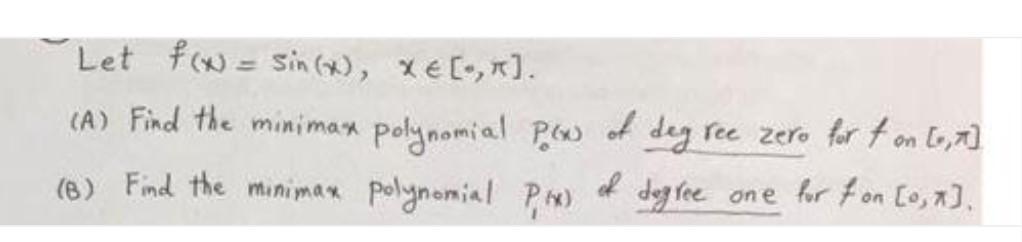 Let f(x) = sin(x), x ∈ [0, π].
(A) Find the minimax polynomial P₀(x) of degree zero for f on [0, π]
(B) Find the minimax polynomial P₁(x) of degree one for f on [0, π].